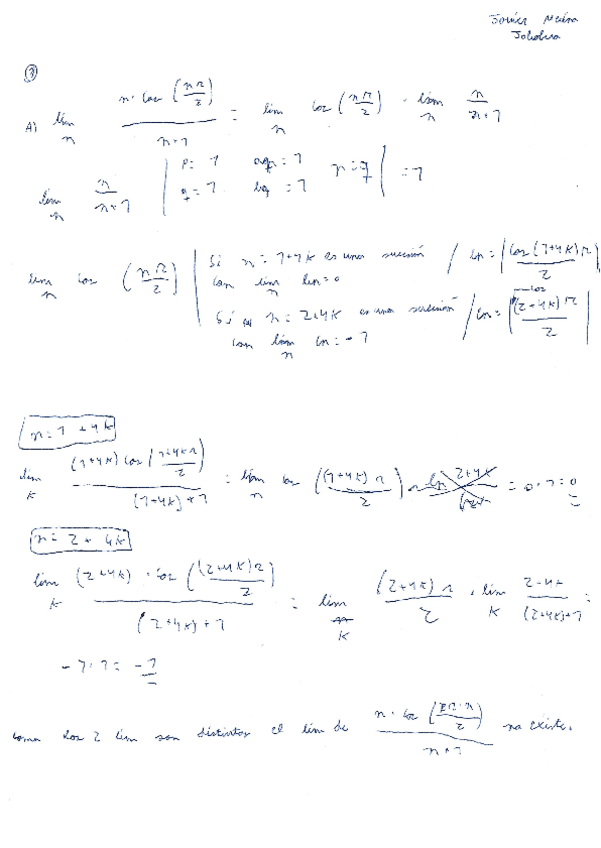 ③
A) lim n n·cos(nπ/2) / n+1 = lim n cos(nπ/2) · lim n n/n+1
lim n n/n+1 | p = 1 ap = 1 | = 1
q = 1 bq = 1
lim n cos (nπ/2) | Si n = 1+4k es una sucesión / bn = |cos(1+4k)π / 2|
con lim n bn = 0
Si n = 2+4k es una sucesión / cn = |cos(2+4k)π / 2|
con lim n cn = -1
n = 1 + 4k
lim k (1+4k) cos(1+4kπ / 2) / (1+4k)+1 = lim n cos ((1+4k)π / 2) = 0·1 = 0
n = 2 + 4k
lim k (2+4k) · cos((2+4k)π / 2) / (2+4k)+1 = lim k (2+4k)π / 2 · lim k / (2+4k)+1 =
-1·1 = -1
como los 2 lim son distintos el lim de n·cos / n+1 no existe.